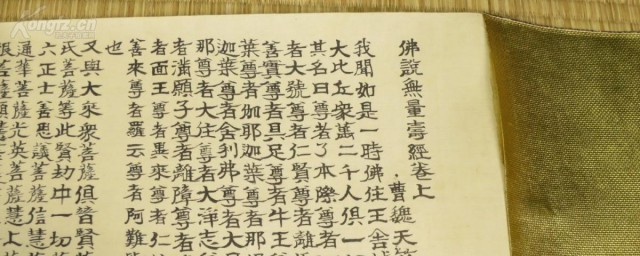 佛說無量壽經卷上
曹魏天
我聞如是一時佛住王舍
大比丘衆萬二千人俱一
其名曰尊者了本際尊者
者大號尊者仁賢尊者離
善實尊者具足尊者牛王
葉尊者伽耶迦葉尊者那
迦葉尊者舍利弗尊者大
那尊者大住尊者大淨志
者滿願子尊者離障尊者
者面王尊者異乘尊者仁
善來尊者羅云尊者阿難
也
又與大衆菩薩俱普賢菩
氏菩薩等此賢劫中一切
六正士善思議菩薩信慧
通華菩薩光英菩薩慧上
根菩薩願慧